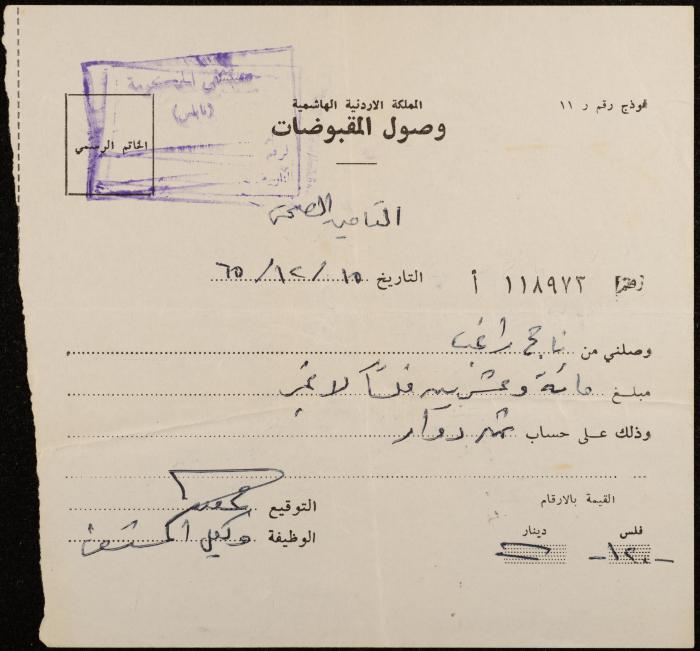 نموذج رقم ر ١١
المملكة الاردنية الهاشمية
وصول المقبوضات
مستشفى الحكومة
(نابلس)
الخاتم الرسمي
التأمين الصحي
رقم ١١٨٩٧٣ أ
التاريخ ١٥ / ١٢ / ٦٥
وصلني من ناجح راغب
مبلغ مائة وعشرين فلساً لا غير
وذلك على حساب ثمن دواء
القيمة بالارقام
فلس دينار
-١٢٠-
التوقيع
الوظيفة وكيل المستشفى